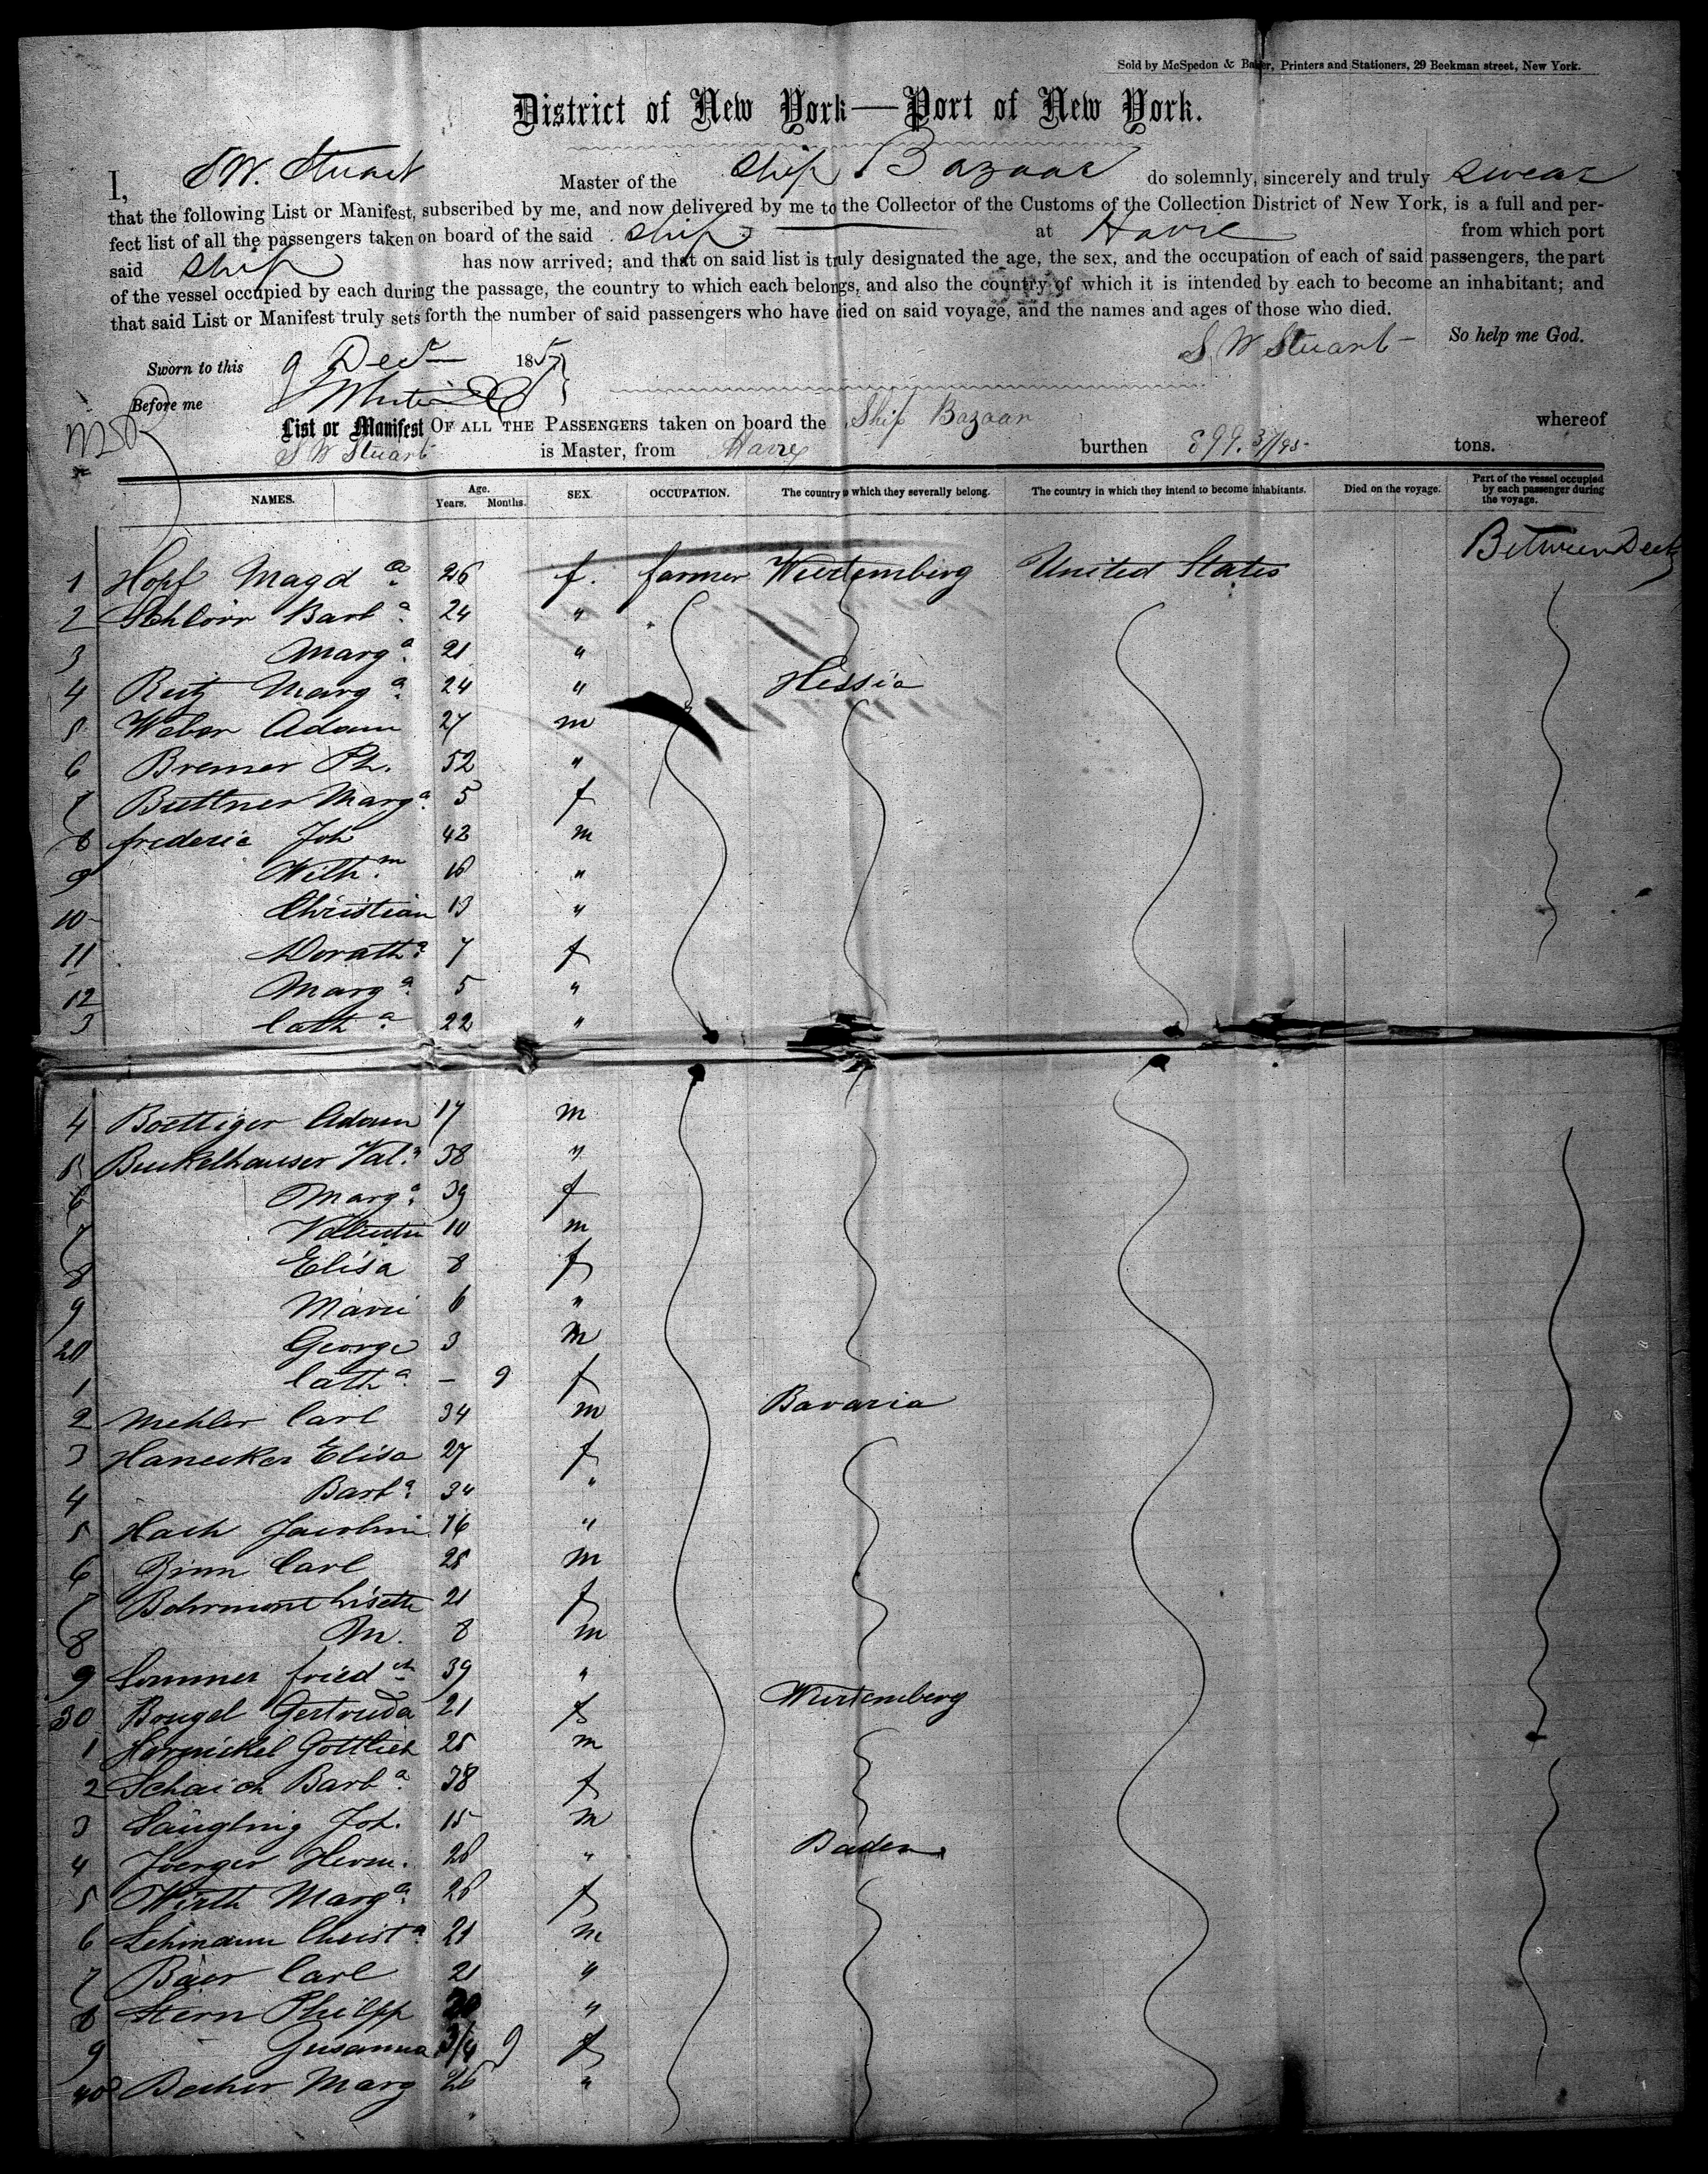 Sold by McSpedon & Baker, Printers and Stationers, 29 Beekman street, New York.
District of New York—Port of New York.
I, S W. Stuart Master of the Ship Bazaar do solemnly, sincerely and truly swear
that the following List or Manifest, subscribed by me, and now delivered by me to the Collector of the Customs of the Collection District of New York, is a full and per-
fect list of all the passengers taken on board of the said ship at Havre from which port
said ship has now arrived; and that on said list is truly designated the age, the sex, and the occupation of each of said passengers, the part
of the vessel occupied by each during the passage, the country to which each belongs, and also the country of which it is intended by each to become an inhabitant; and
that said List or Manifest truly sets forth the number of said passengers who have died on said voyage, and the names and ages of those who died.
S W Stuart So help me God.
Sworn to this 9 Decr 1857
Before me
List or Manifest OF ALL THE PASSENGERS taken on board the Ship Bazaar whereof
S W Stuart is Master, from Havre burthen 899. 37/95 tons.
NAMES. Age. Years. Months. SEX. OCCUPATION. The country to which they severally belong. The country in which they intend to become inhabitants. Died on the voyage. Part of the vessel occupied by each passenger during the voyage.
Between Deck
1 Hopf Magda 26 f. farmer Wurtemberg United States
2 Schlörr Barba 24 "
3 Marga 21 "
4 Reitz Marga 24 " Hessia
5 Weber Adam 27 m
6 Bremer Ph. 52 "
7 Buttner Marga 5 f
8 frederic Joh 42 m
9 Wilhm 16 "
10 Christian 13 "
11 Doratha 7 f
12 Marga 5 "
3 Catha 22 "
4 Boettiger Adam 17 m
5 Buckelhauser Val.n 38 "
6 Marga 39 f
7 Valentin 10 m
8 Elisa 8 f
9 Marie 6 "
20 George 3 m
1 Catha — 9 f
2 Mehler Carl 34 m Bavaria
3 Hanecker Elisa 27 f
4 Barba 34 "
5 Hach Jacobin 16 "
6 Zinn Carl 25 m
7 Bohrmont Lisette 21 f
8 M. 8 m
9 Sommer friedch 39 "
30 Bougel Gertruda 21 f Wurtemberg
1 Hornickel Gottlieb 25 m
2 Schaich Barba 38 f
3 Säugling Joh. 15 m
4 Joerger Herm. 28 " Baden
5 Wirth Marga 26 f
6 Lehmann Christa 21 m
7 Baer Carl 21 "
8 Stern Philipp 20 "
9 Susanna 3/4 9 f
40 Becher Marg 26 "